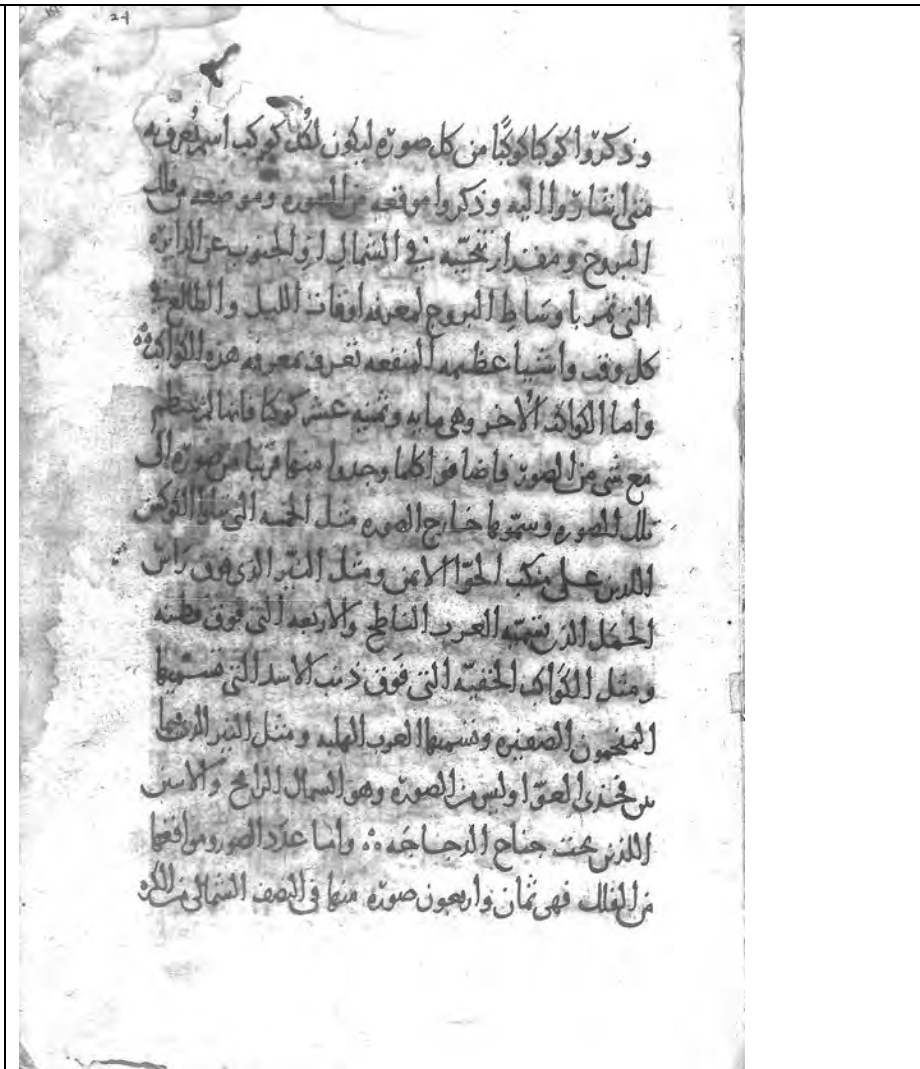 24
وذكروا كوكبا كوكبًا من كل صورة ليكون لكل كوكب اسم يُعرف به
متى اشاروا اليه وذكروا موقعه من الصورة وموضعه من فلك
البروج ومقدار تنحّيه في الشمال او الجنوب عن الدائره
التى تمر باوسَاطِ البروج لمعرفه اوقات الليل والطالع في
كل وقت واشيا عظيمه المنفعه تعرف بمعرفه هذه الكواكب
واما الكواكب الاُخر وهى مايه وثمنيه عشر كوكبا فانها لم تنتظم
مع شى من الصور فاضافوا كلما وجدوا منها قريبًا من صورة الى
تلك الصوره وسمّوها خارج الصوره مثل الخمسه التى الكوكبين
اللذين على منكب الحوّا الايمن ومثل النيّر الذى فوق رَاس
الحمَل الذى تسمّيه العرب الناطح والاربعه التى فوق قطنه
ومثل الكوَاكب الخفيّه التى فَوق ذنب الاسد التى تسمّيها
المنجمون الضفيره وتسميها العرب الهلبه ومثل النير الذى
بين فخذى العوّا وليس من الصورة وهو السماك الرامح والاسين
اللذين تحت جناح الدجاجَه ۞ واما عدَد الصور ومواقعها
من الفلك فهى ثمان واربعون صورة منها في النصف الشمالى من الكره